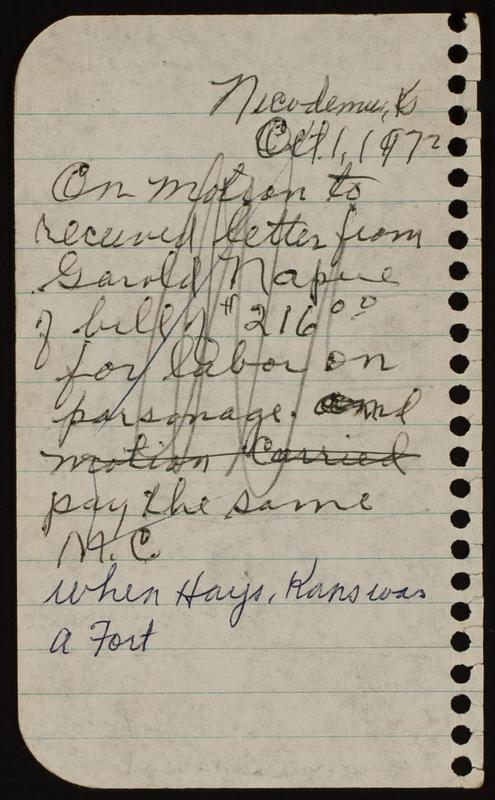 Nicodemus, Ks
Oct. 1, 1972
On motion to
received letter from
Garold Napue
of bill of $216.00
for labor on
parsonage. and
motion Carried
pay the same
M.C.
When Hays, Kans was
a Fort